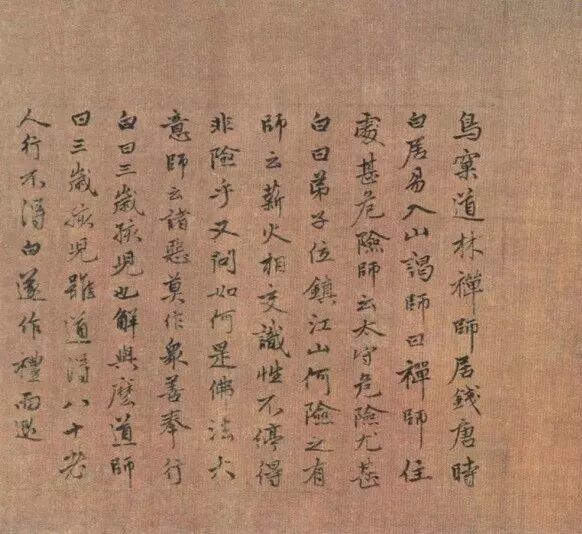 鳥窠道林禪師居錢唐時
白居易入山謁師曰禪師住
處甚危險師云太守危險尤甚
白曰弟子位鎮江山何險之有
師云薪火相交識性不停得
非險乎又問如何是佛法大
意師云諸惡莫作衆善奉行
白曰三歲孩兒也解與麼道師
曰三歲孩兒雖道得八十老
人行不得白遂作禮而退